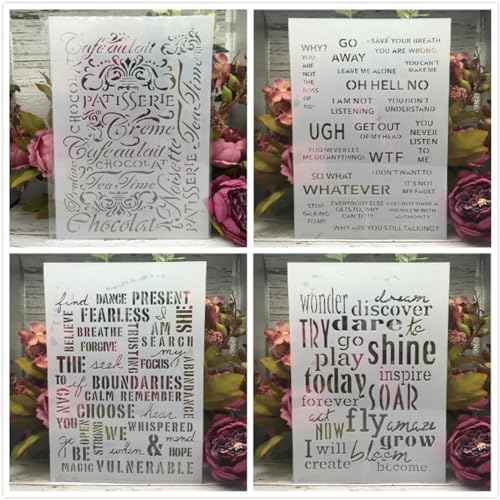 Café au lait
PATISSERIE
Crème
Café au lait
CHOCOLAT
Tea Time
Chocolat
CHOCOLAT
Noisette
Tea Time
PATISSERIE
WHY?
YOU
ARE
NOT
THE
BOSS
OF
ME!
GO
AWAY
SAVE YOUR BREATH
YOU ARE WRONG
LEAVE ME ALONE
YOU CAN'T
MAKE ME
OH HELL NO
I AM NOT
LISTENING
YOU DON'T
UNDERSTAND
UGH
GET OUT
OF MY HEAD
YOU
NEVER
LISTEN
TO
ME
YOU NEVER LET
ME DO ANYTHING!
WTF
SO WHAT
I DON'T WANT TO
WHATEVER
IT'S NOT
MY FAULT
STOP
TALKING
TO ME
EVERYBODY ELSE
GETS TO, WHY
CAN'T I?
I DO NOT HAVE A
PROBLEM WITH
AUTHORITY
WHY ARE YOU STILL TALKING?
find DANCE PRESENT
FEARLESS I
BELIEVE
BREATHE
FORGIVE
TRUSTING
AM
SEARCH
SHE
my
THE seek FOCUS
TO
if BOUNDARIES
ABUNDANCE
CALM REMEMBER
CAN
YOU
CHOOSE hear
go
BE
OPEN
STRONG
WE WHISPERED
whom & mend
HOPE
MAGIC VULNERABLE
wonder dream
discover
TRY dare to
go
play shine
today inspire
forever SOAR
act
NOW fly amaze
grow
I will bloom
create become